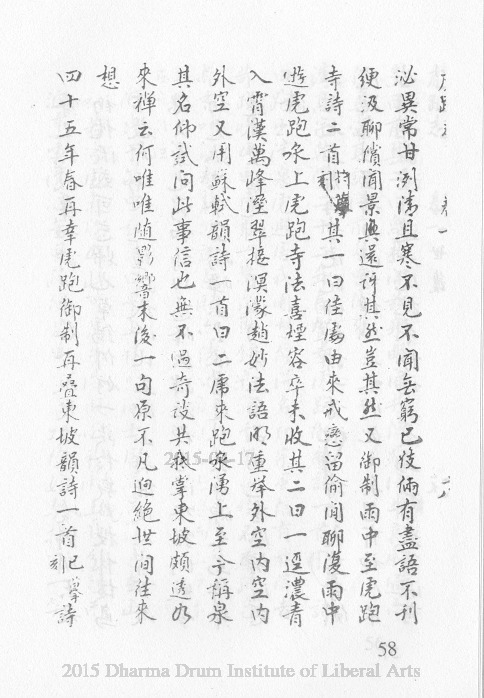 泌異常甘冽清且寒不見不聞無窮已伎倆有盡語不刊
便汲聊償聞景興還訝其然豈其然又御制雨中至虎跑
寺詩二首其一曰佳處由來戒戀留偷閒聊復雨中
遊虎跑泉上虎跑寺法喜煙容卒未收其二曰一逕濃青
入霄漢萬峰溼翠接溟濛趙妙法語明重舉外空內空內
外空又用蘇軾韻詩一首曰二虎來跑泉湧上至今稱泉
其名仰試問此事信也無不過奇談共抵掌東坡頗透此
來禪云何唯唯隨影響末後一句原不凡迥絕世間往來
想
四十五年春再幸虎跑御制再疊東坡韻詩一首已摹詩
刻
58
2015-03-17
2015 Dharma Drum Institute of Liberal Arts